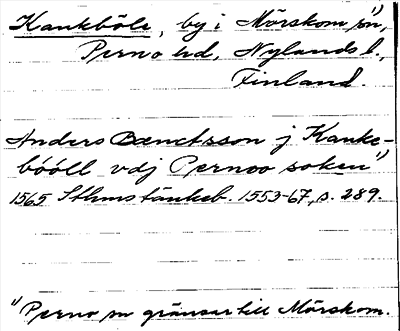 Kankböle, by i Mörskom sn,¹⁾
Perno hd, Nylands l.,
Finland.
Anders Bænctsson j Kanke-
bööll vdj Pernoo soken¹⁾
1565 Sthmstänkeb. 1553-67, s. 289.
¹⁾ Perno sn gränsar till Mörskom.